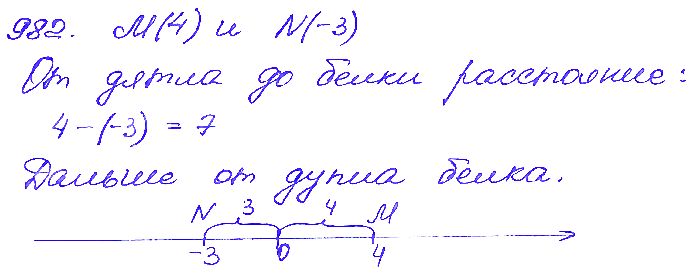 982. М(4) и N(-3)
От дятла до белки расстояние:
4-(-3) = 7
Дальше от дупла белка.
N 3 4 M
-3 0 4